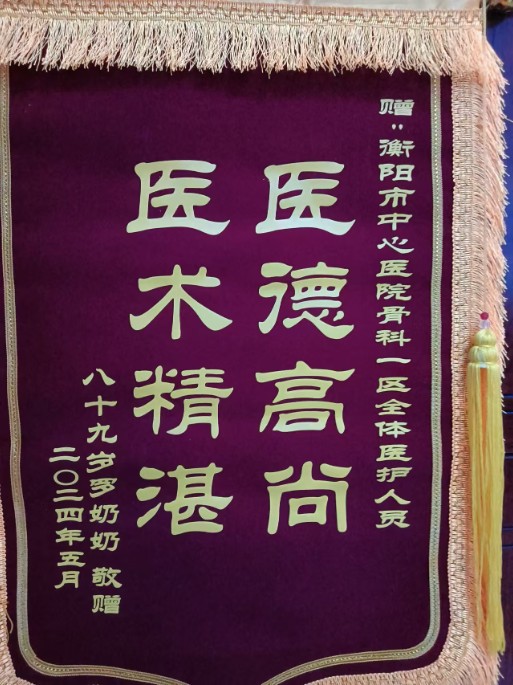 赠"衡阳市中心医院骨科一区全体医护人员
医德高尚
医术精湛
八十九岁罗奶奶 敬赠
二〇二四年五月